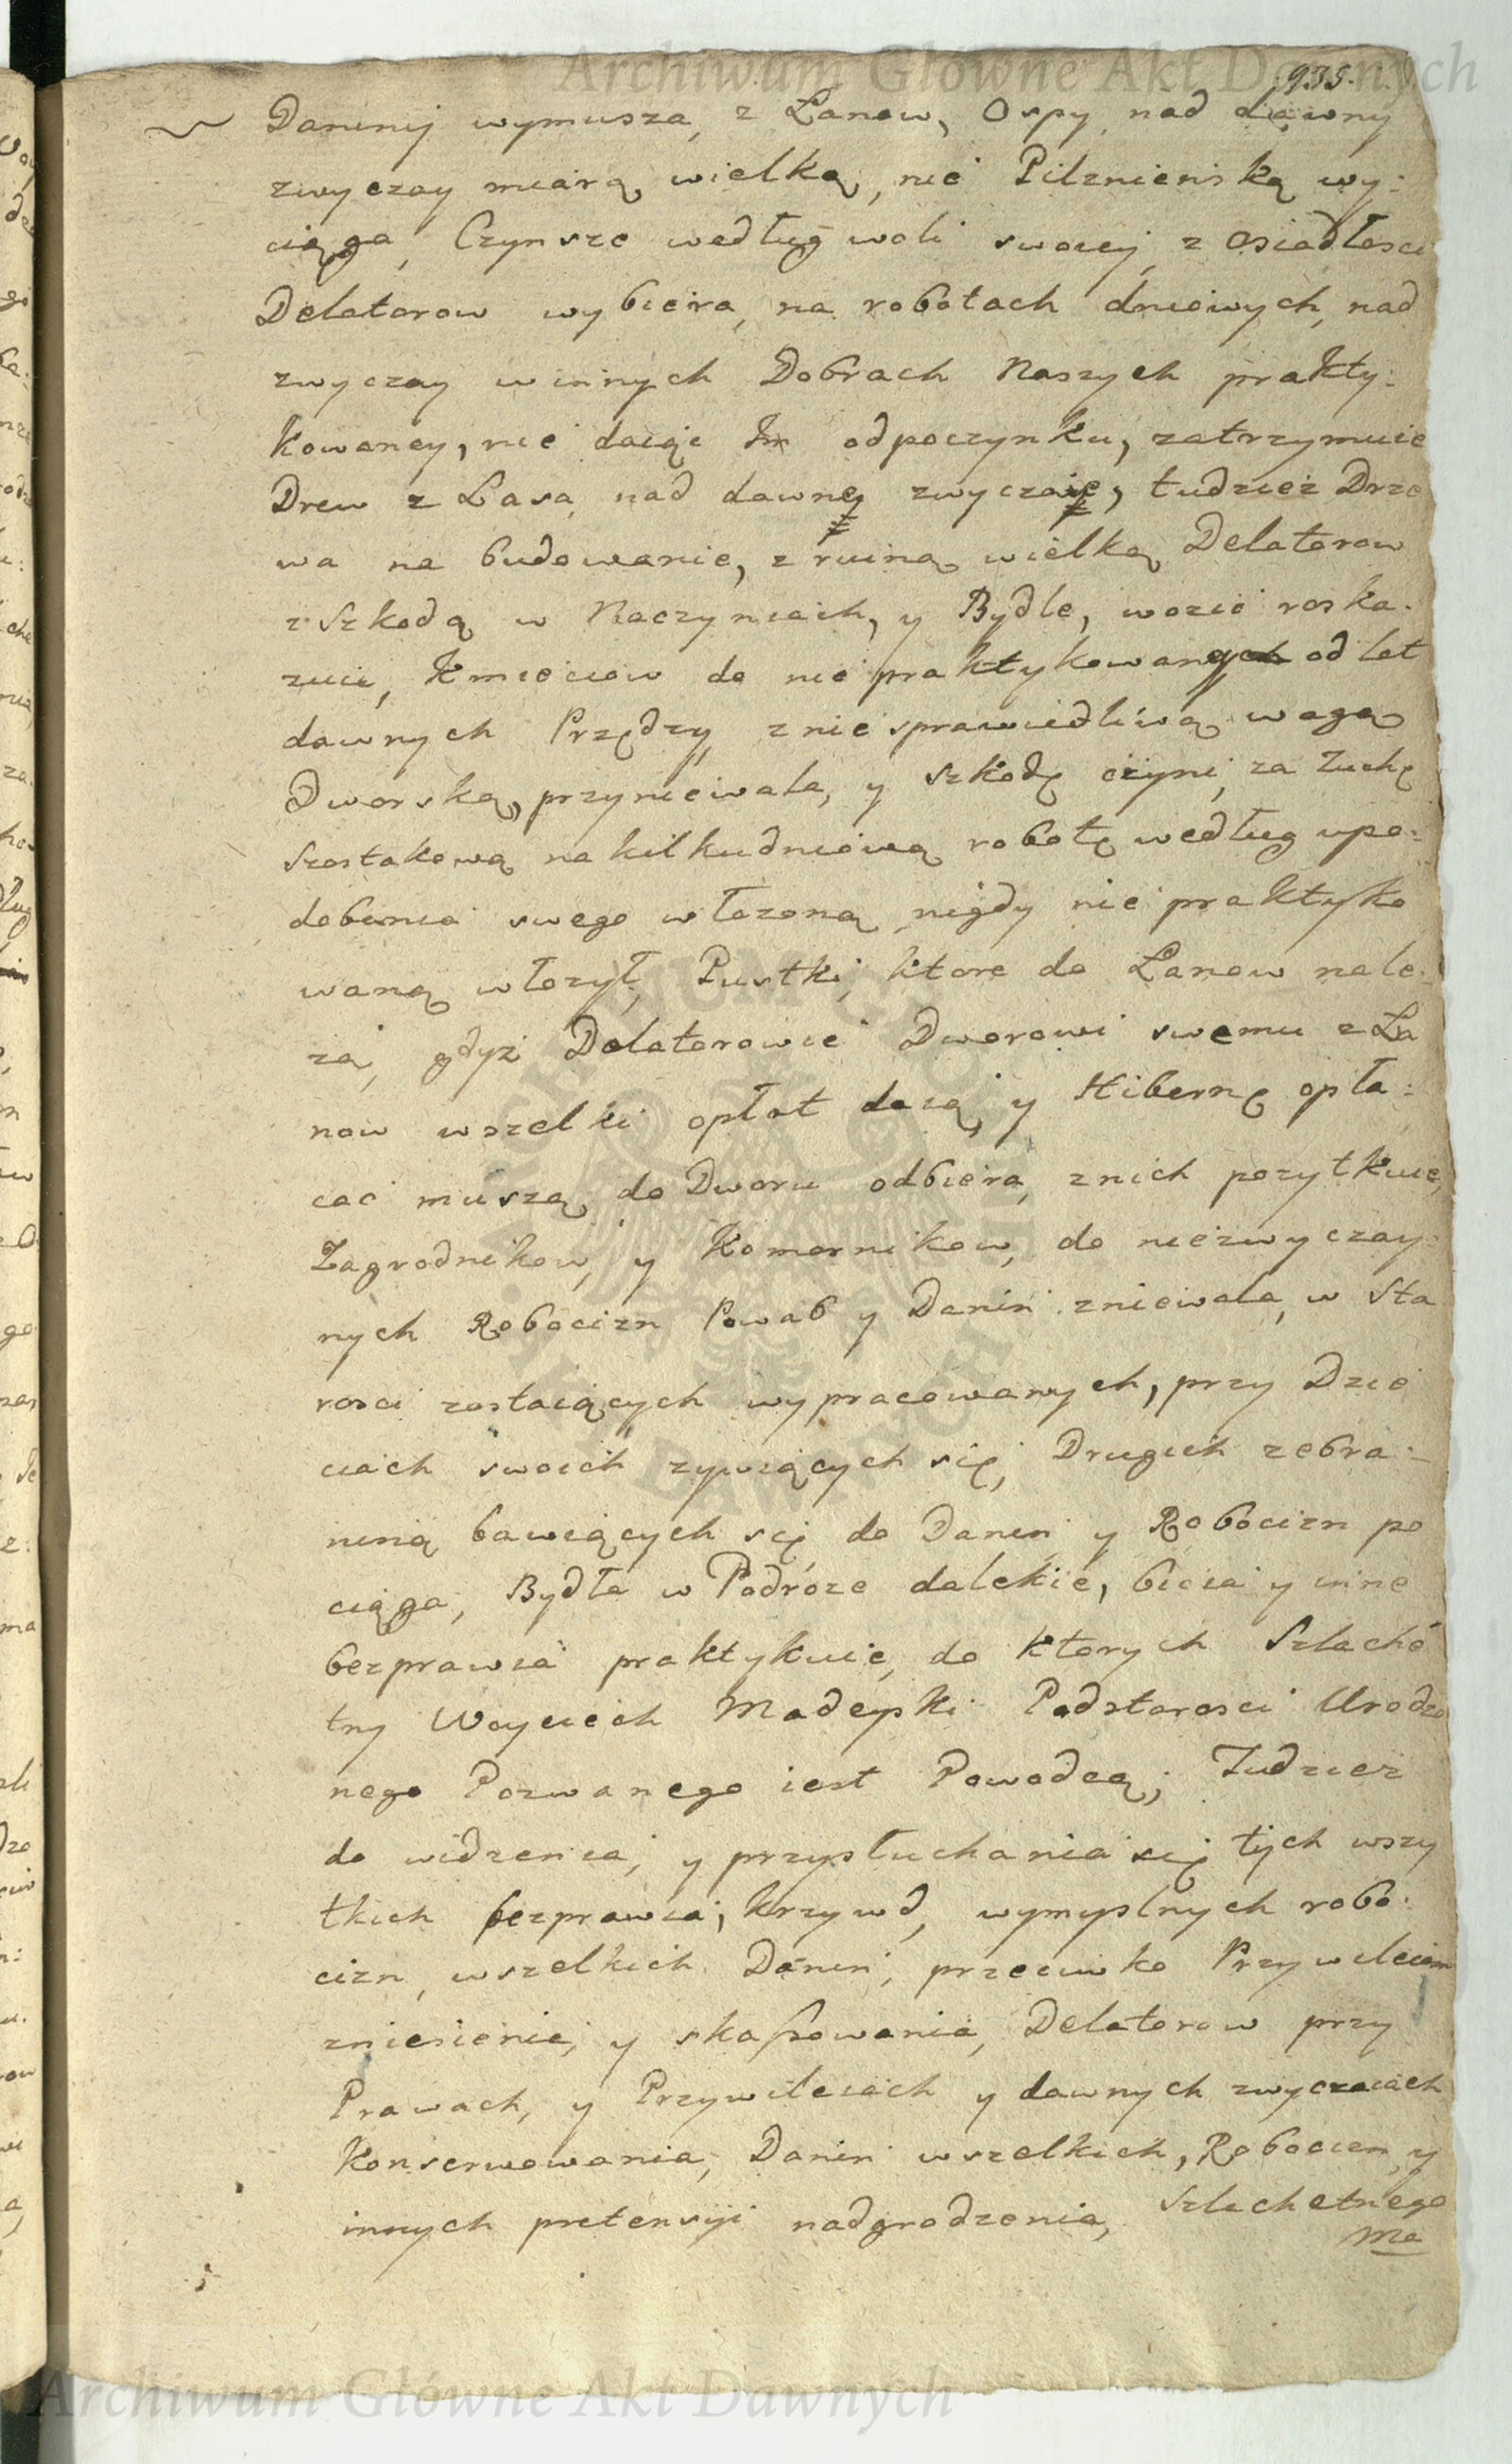 Archiwum Główne Akt Dawnych
935.
Daniny wymusza, z Łanow, Ospy, nad dawny
zwyczay miarą wielką, nie Pilznieńską wy:
ciąga, Czynsze według woli swoiey z osiadłosci
Delatorow wybiera, na robotach dniowych, nad
zwyczay winnych Dobrach Naszych prakty:
kowaney, nie daiąc Im odpoczynku, zatrzymuie
Drew z Lasa nad dawny zwyczaie, tudzież Drze
wa na budowanie, z ruiną wielką Delatorow
z Szkodą w Naczyniach, y Bydle, wozić roska:
zuie, Kmieciow do nie praktykowanych od lat
dawnych Przędzy z niesprawiedliwą wagą
Dworską, przyniewala, y szkodę czyni, za Zuchę
szostakową na kilkudniową robotę według upo:
dobania swego włozoną nigdy nie praktyko
waną włozył, Pustki, ktore do Łanow nale:
zą, gdyz Delatorowie Dworowi swemu z Ła
now wszelki opłat daią, y Hibernę opła:
cać muszą, do Dworu odbiera, z nich pozytkuie,
Zagrodnikow, y Komornikow, do niezwyczay:
nych Robocizn Powab y Danin zniewala, w Sta
rosci zostaiących wypracowanych, przy Dzie
ciach swoich zywiących się, Drugich zebra:
niną bawiących się do Danin y Robocizn po
ciąga, Bydła w Podróze dalekie, bicia y inne
bezprawia praktykuie, do ktorych Szlache
tny Woyciech Madeyski Podstarosci Urodzo
nego Pozwanego iest Powodcą; Tudziez
do widzenia, y przysłuchania się tych wszy
tkich bezprawia, krzywd, wymyslnych robo:
cizn, wszelkich Danin, przeciwko Przywileiom
zniesienie, y skassowania, Delatorow przy
Prawach, y Przywileiach y dawnych zwyczaiach
Konserwowania, Danin wszelkich, Robocizn, y
innych pretensyi nadgrodzenia, Szlachetnego
Ma
Archiwum Główne Akt Dawnych